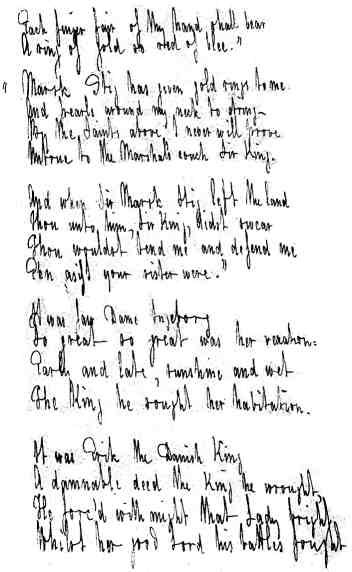 Each finger fair of thy hand shall bear
A ring of gold so red of blee."
"Marsk Stig has given gold rings to me
And pearls around my neck to string
By the Saints above I never will prove
Untrue to the Marshal's couch Sir King.
And when Sir Marsk Stig left the land
Thou unto him, Sir King, didst swear
Thou wouldst tend me and defend me
E'en as if your sister were."
It was fair Dame Ingeborg
So great so great was her vexation:
Early and late, sunshine and wet
The King he sought her habitation.
It was Erik the Danish King
A damnable deed the King he wrought,
He forc'd with might that Lady bright,
Whilst her good Lord his battles fought